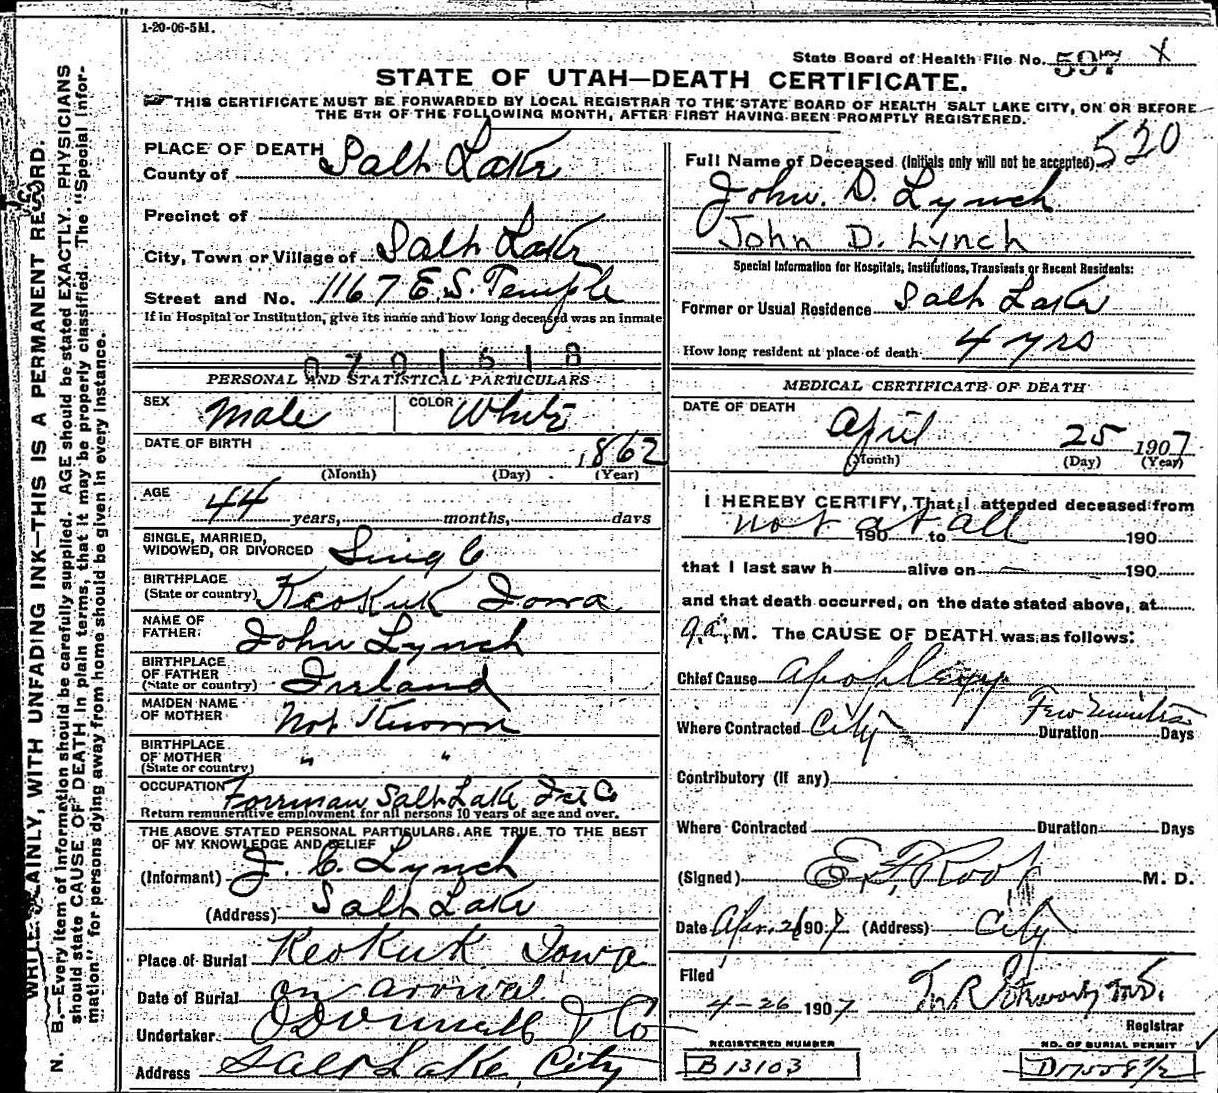 1-20-06-5M.
State Board of Health File No. 597 X
STATE OF UTAH—DEATH CERTIFICATE.
THIS CERTIFICATE MUST BE FORWARDED BY LOCAL REGISTRAR TO THE STATE BOARD OF HEALTH SALT LAKE CITY, ON OR BEFORE
THE 5TH OF THE FOLLOWING MONTH, AFTER FIRST HAVING BEEN PROMPTLY REGISTERED.
WRITE PLAINLY, WITH UNFADING INK—THIS IS A PERMANENT RECORD.
N. B.—Every item of information should be carefully supplied. AGE should be stated EXACTLY. PHYSICIANS
should state CAUSE OF DEATH in plain terms, that it may be properly classified. The "Special Infor-
mation" for persons dying away from home should be given in every instance.
PLACE OF DEATH
County of Salt Lake
Precinct of
City, Town or Village of Salt Lake
Street and No. 1167 E. S. Temple
If in Hospital or Institution, give its name and how long deceased was an inmate
0701518
PERSONAL AND STATISTICAL PARTICULARS
SEX Male COLOR White
DATE OF BIRTH 1862
(Month) (Day) (Year)
AGE 44 years, months, days
SINGLE, MARRIED,
WIDOWED, OR DIVORCED Single
BIRTHPLACE
(State or country) Keokuk Iowa
NAME OF
FATHER: John Lynch
BIRTHPLACE
OF FATHER
(State or country) Ireland
MAIDEN NAME
OF MOTHER Not Known
BIRTHPLACE
OF MOTHER
(State or country) " "
OCCUPATION Forrman Salt Lake Ice Co
Return remunerative employment for all persons 10 years of age and over.
THE ABOVE STATED PERSONAL PARTICULARS ARE TRUE TO THE BEST
OF MY KNOWLEDGE AND BELIEF
(Informant) J. C. Lynch
(Address) Salt Lake
Place of Burial Keokuk Iowa
Date of Burial on arrival
Undertaker O'Donnell & Co
Address Salt Lake City
520
Full Name of Deceased (Initials only will not be accepted)
John. D. Lynch
John D. Lynch
Special Information for Hospitals, Institutions, Transients or Recent Residents:
Former or Usual Residence Salt Lake
How long resident at place of death 4 yrs
MEDICAL CERTIFICATE OF DEATH
DATE OF DEATH
April 25 1907
(Month) (Day) (Year)
I HEREBY CERTIFY, That I attended deceased from
not at all
190 to 190
that I last saw h alive on 190
and that death occurred, on the date stated above, at
9 a. M. The CAUSE OF DEATH was as follows:
Chief Cause Apoplexy
Where Contracted City Duration Few minutes Days
Contributory (if any)
Where Contracted Duration Days
(Signed) E. F. Root M. D.
Date Apr. 26 1907 (Address) City
Filed
4-26 1907
Registrar
REGISTERED NUMBER
B 13103
NO. OF BURIAL PERMIT